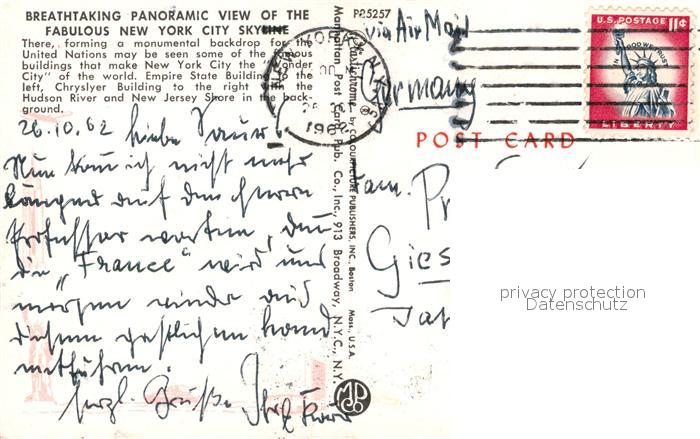 BREATHTAKING PANORAMIC VIEW OF THE
FABULOUS NEW YORK CITY SKYLINE
There, forming a monumental backdrop for the
United Nations may be seen some of the famous
buildings that make New York City the "Wonder
City" of the world. Empire State Building to the
left, Chryslyer Building to the right with the
Hudson River and New Jersey Shore in the back-
ground.
P25257
via Air Mail
Germany
U.S. POSTAGE 11¢
IN GOD WE TRUST
LIBERTY
POST CARD
Plastichrome by COLOURPICTURE PUBLISHERS, INC., Boston Mass., U.S.A.
Manhattan Post Card Pub. Co., Inc., 913 Broadway, N.Y.C., N.Y.
1962
26.10.62 Liebe
Nun kann ich nicht mehr
länger auf den
Professor warten, denn
die "France" wird uns
morgen wieder aus
diesem gastlichen Land
entführen.
Herzl. Grüße Ihr
Fam.
Gies
privacy protection
Datenschutz